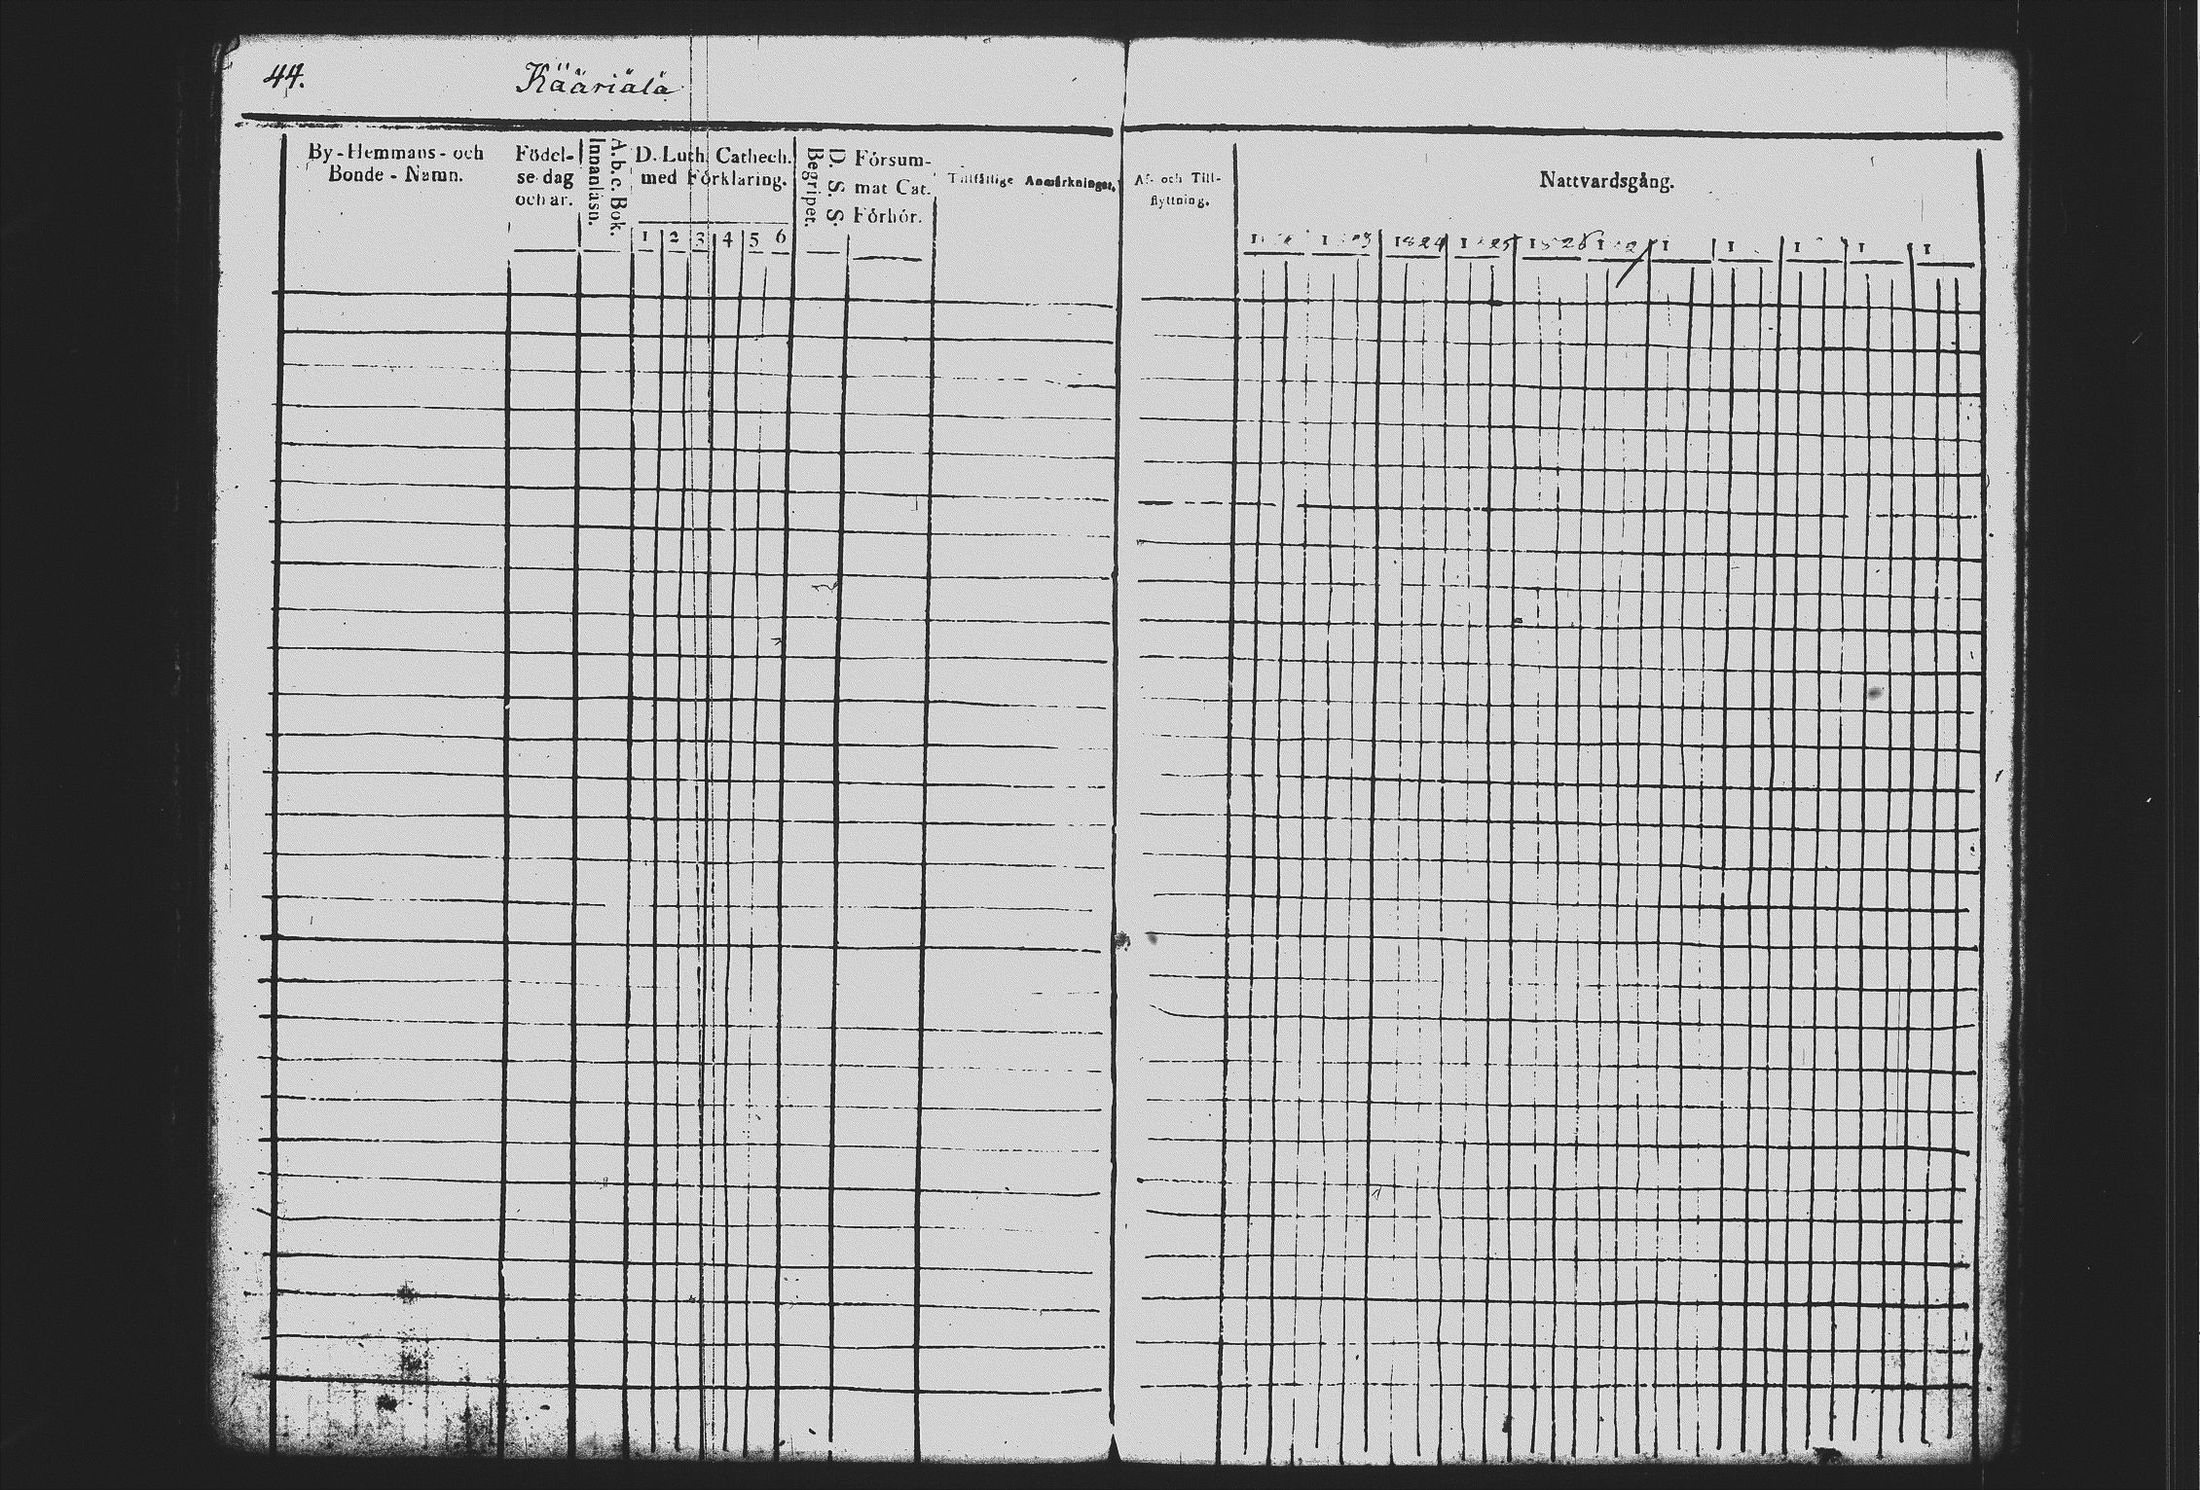 44. Kääriälä
By-Hemmans- och
Bonde-Namn.
Födel-
se dag
och år.
A. b. c. Bok.
Innanläsn.
D. Luth. Cathech.
med Förklaring.
1 2 3 4 5 6
D. S. S.
Begripet.
Försum-
mat Cat.
Förhör.
Tillfällige Anmärkningar.
Af- och Till-
flyttning.
Nattvardsgång.
1824 1825 1826 1 1 1 1 1